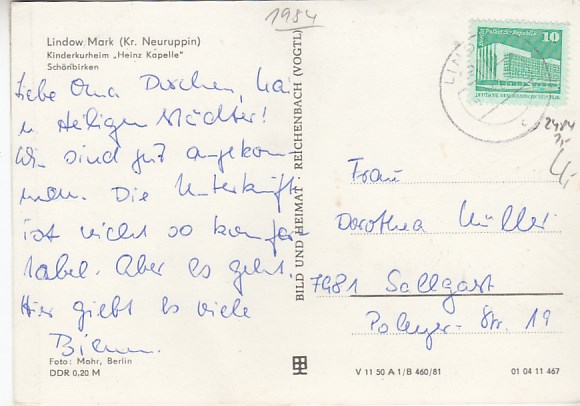 1984
Lindow/Mark (Kr. Neuruppin)
Kinderkurheim „Heinz Kapelle"
Schönbirken
Liebe Oma Durchen,
u. Heiligen Städter!
Wir sind gut angekom-
men. Die Unterkunft
ist nicht so komfor-
tabel. Aber es geht.
Hier giebt es viele
Bienen.
Foto: Mohr, Berlin
DDR 0,20 M
BILD UND HEIMAT REICHENBACH (VOGTL)
Palast der Republik
10
DEUTSCHE DEMOKRATISCHE REPUBLIK
2484
Frau
Dorothea Müller
7981 Sallgast
Str. 19
V 11 50 A 1/B 460/81
01 04 11 467